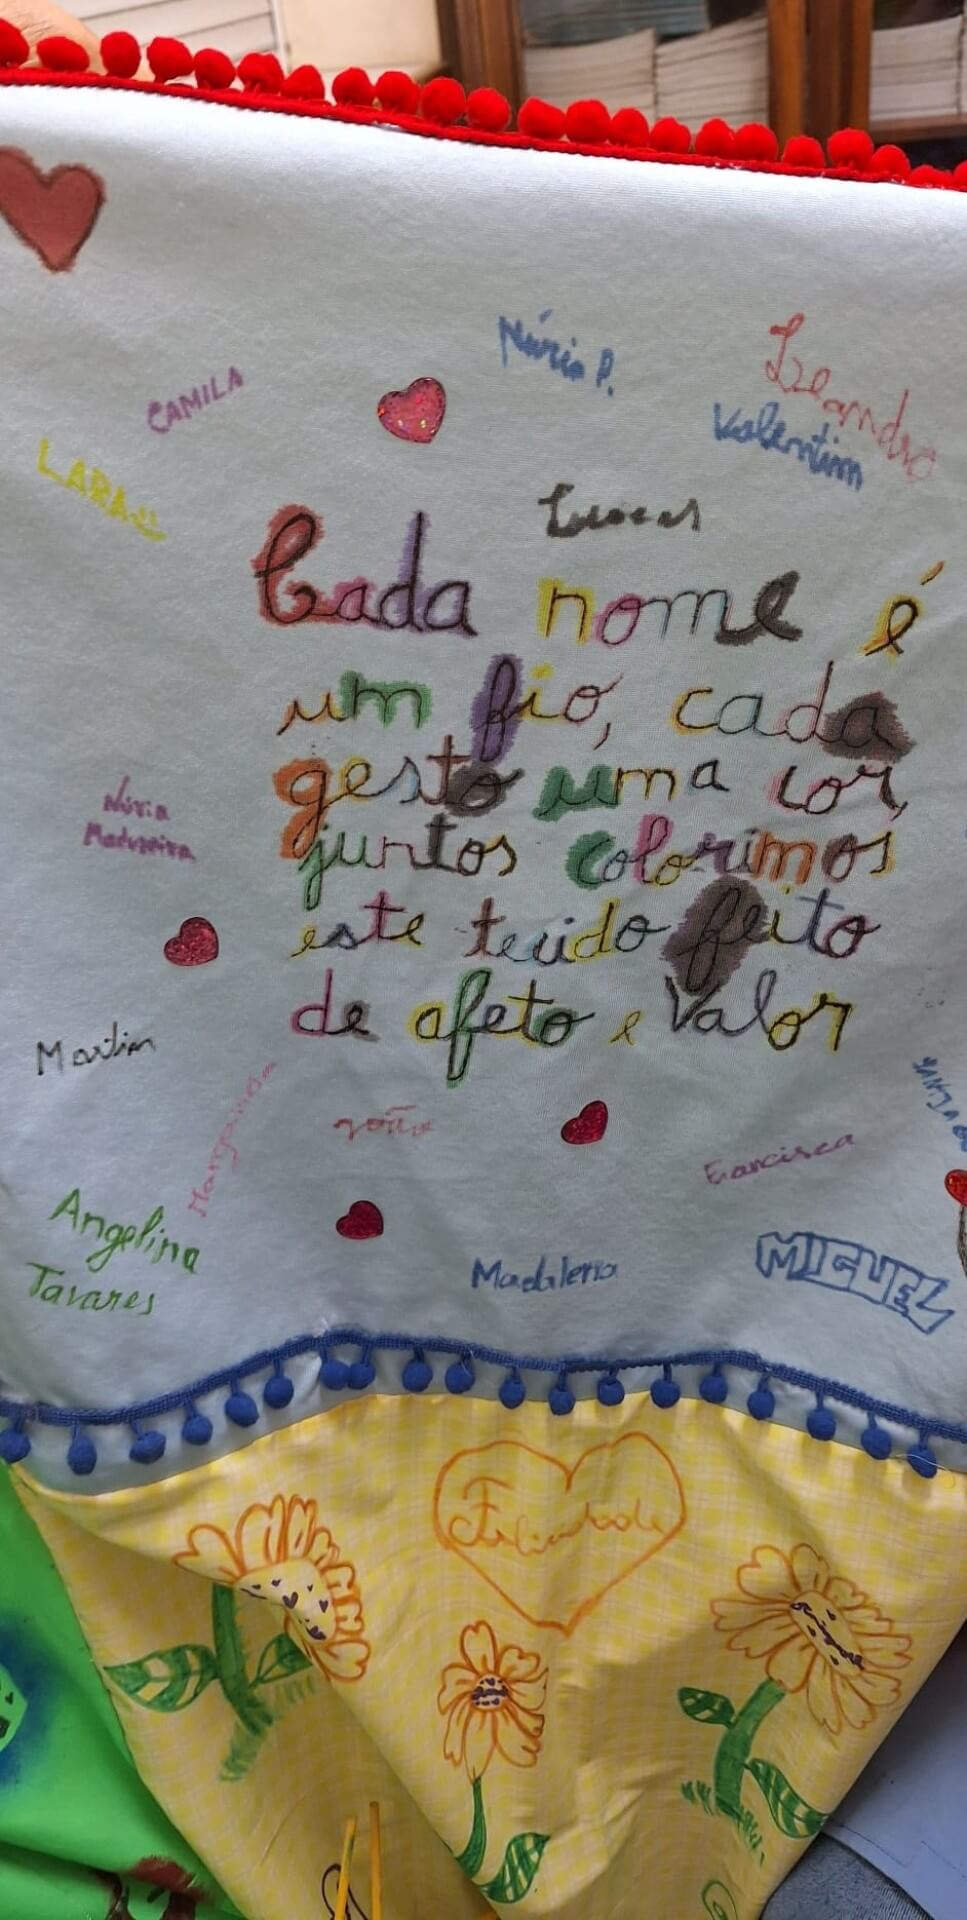 Núria P.
Leandro
CAMILA
Valentim
LARA
Lucas
Cada nome é
um fio, cada
gesto uma cor,
juntos colorimos
este tecido feito
de afeto e Valor
Núria
Madureira
Martim
Margarida
João
Francisca
Angelina
Tavares
Madalena
MIGUEL
Felicidade